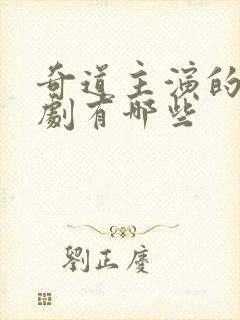 奇道主演的
劇有哪些
劉正慶